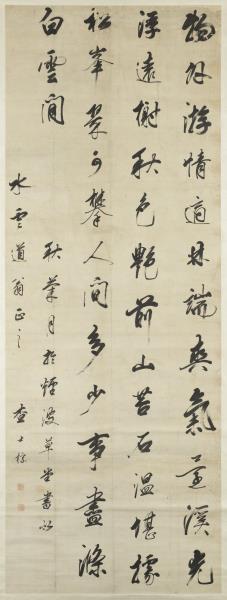 物外游情適林端爽氣還溪光
浮遠樹秋色艷前山苔石溫堪據
松峯翠可攀人間多少事盡滌
白雲間
秋月於煙波草堂書似
水雲道翁正之 查士標